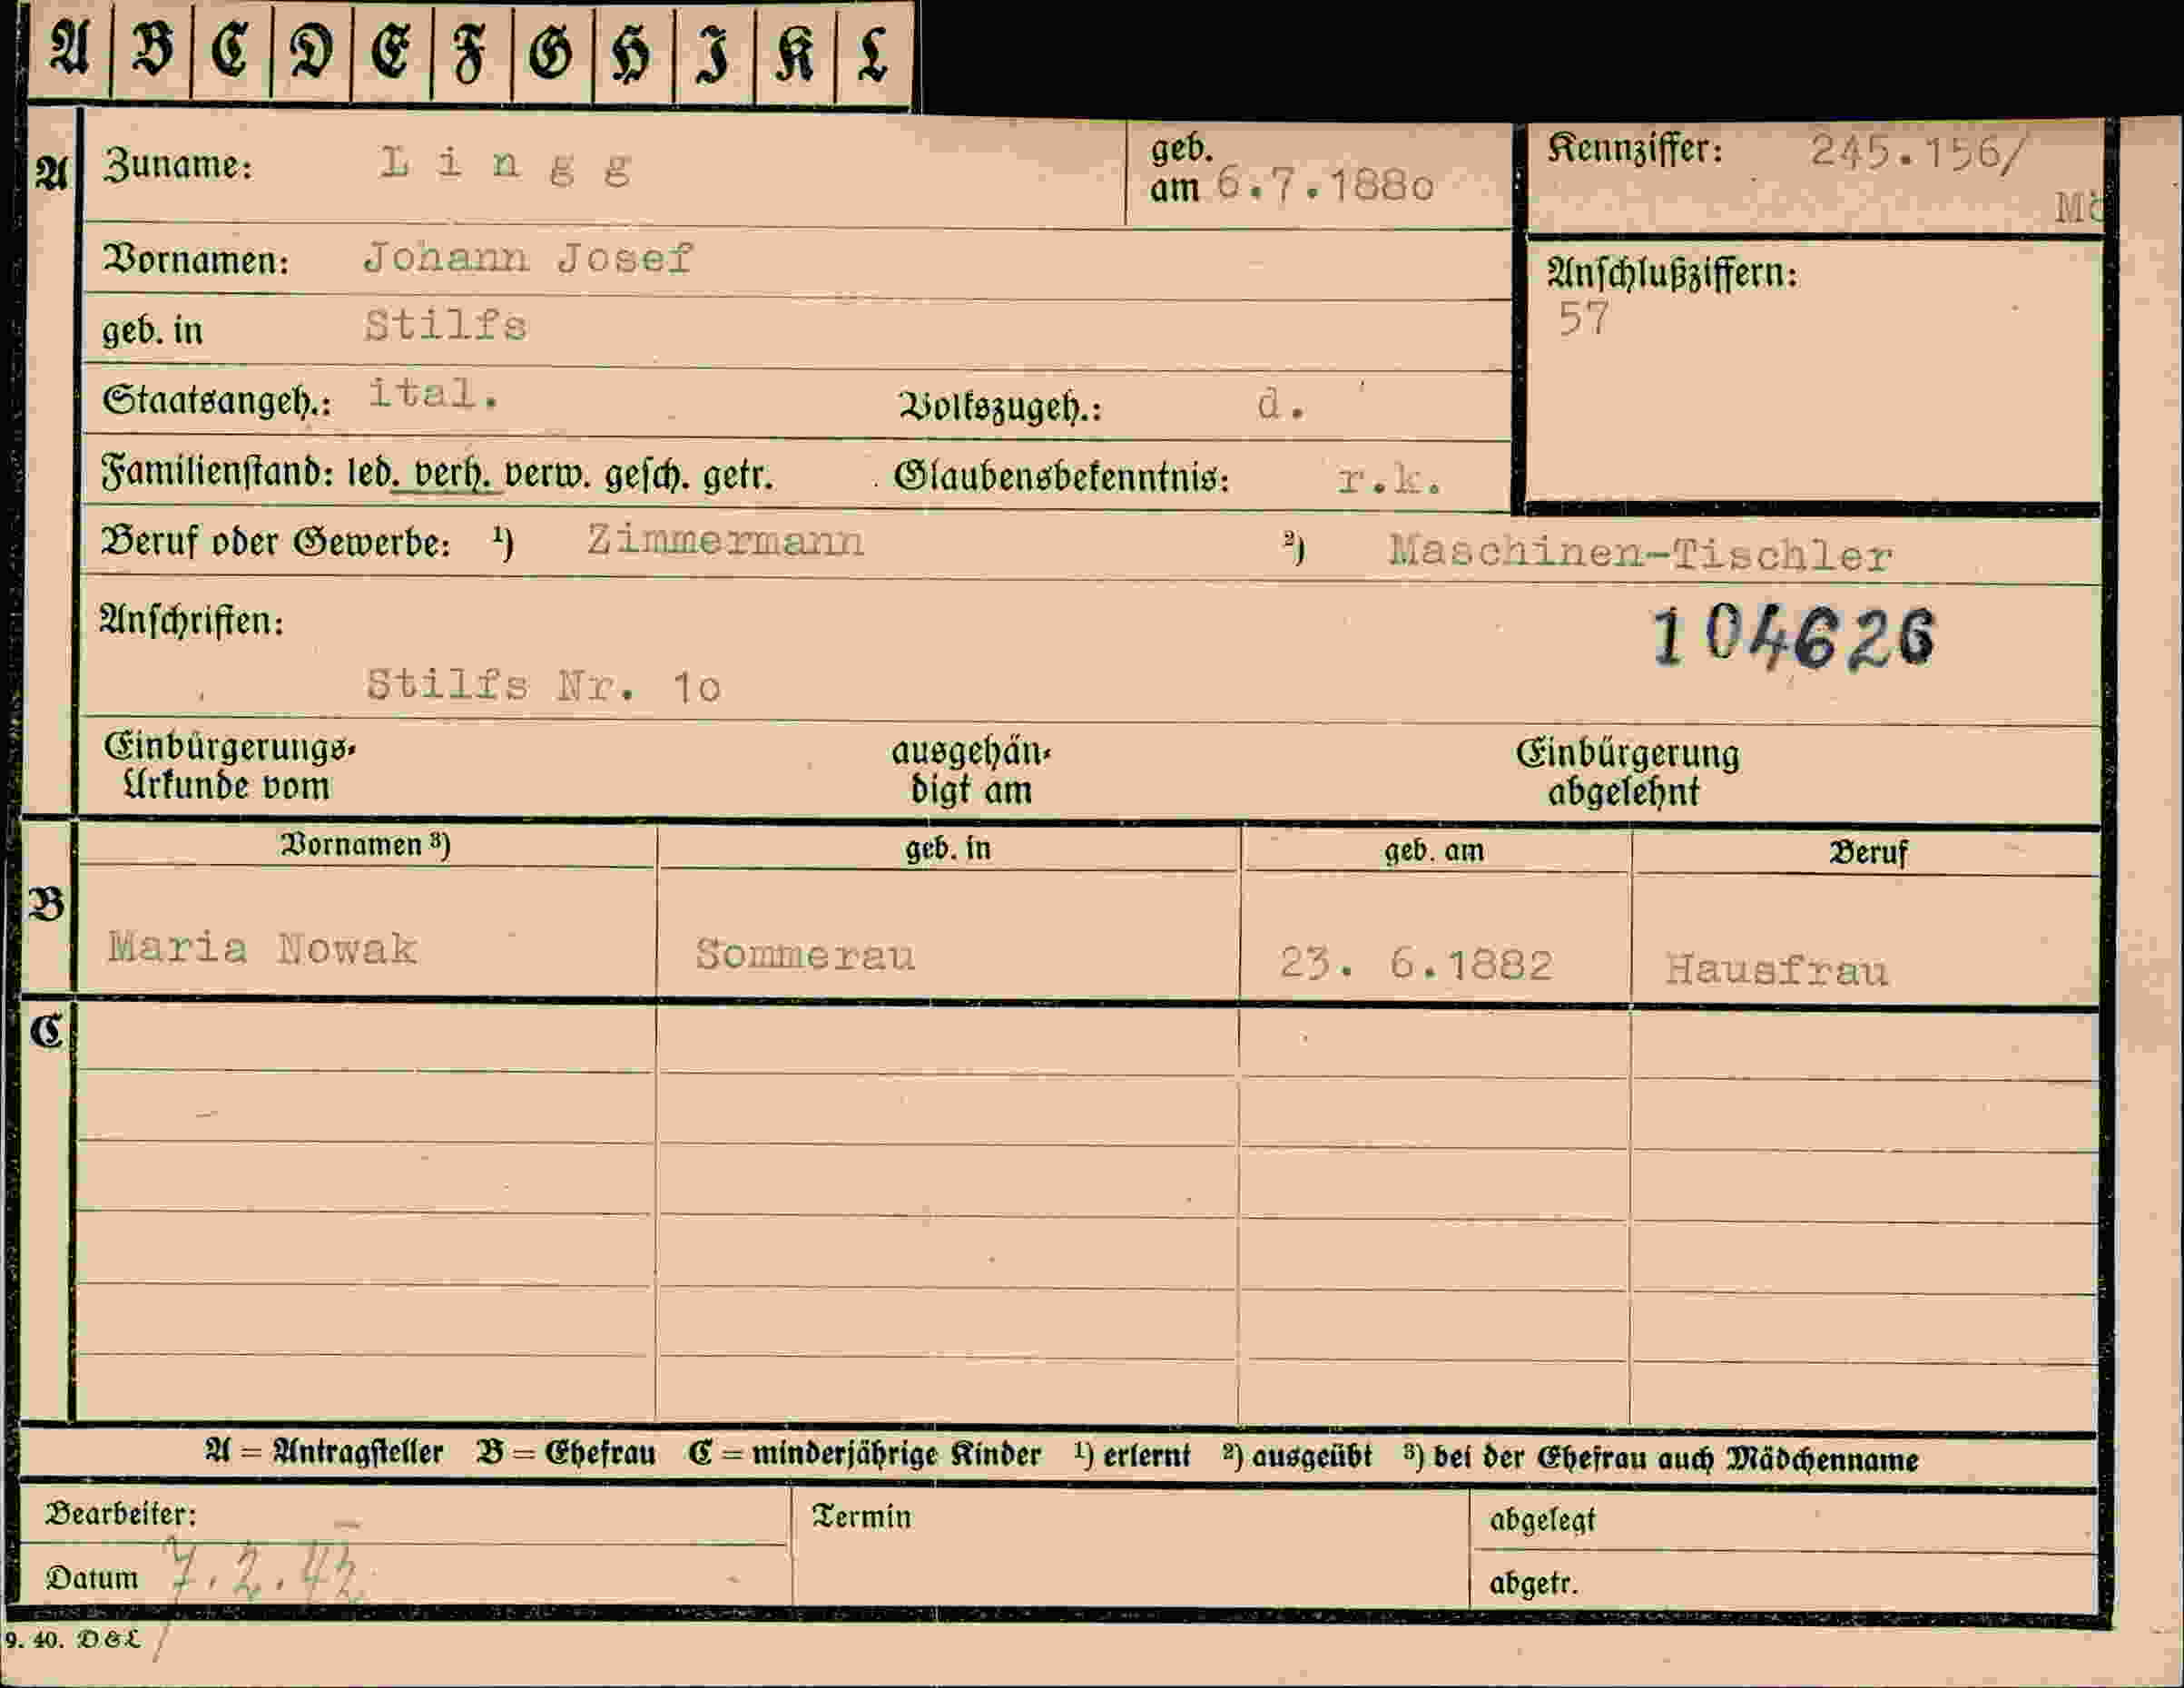 A B C D E F G H I K L
A Zuname: Lingg geb. am 6.7.188o Kennziffer: 245.156/
Mö
Vornamen: Johann Josef
Anschlußziffern:
57
geb. in Stilfs
Staatsangeh.: ital. Volkszugeh.: d.
Familienstand: led. verh. verw. gesch. getr. Glaubensbekenntnis: r.k.
Beruf oder Gewerbe: ¹) Zimmermann ²) Maschinen-Tischler
Anschriften: 104626
Stilfs Nr. 1o
Einbürgerungs- ausgehän- Einbürgerung
Urkunde vom digt am abgelehnt
Vornamen ³) geb. in geb. am Beruf
B Maria Nowak Sommerau 23. 6.1882 Hausfrau
C
A = Antragsteller B = Ehefrau C = minderjährige Kinder ¹) erlernt ²) ausgeübt ³) bei der Ehefrau auch Mädchenname
Bearbeiter: Termin abgelegt
Datum 7.2.42 abgetr.
9. 40. D&L